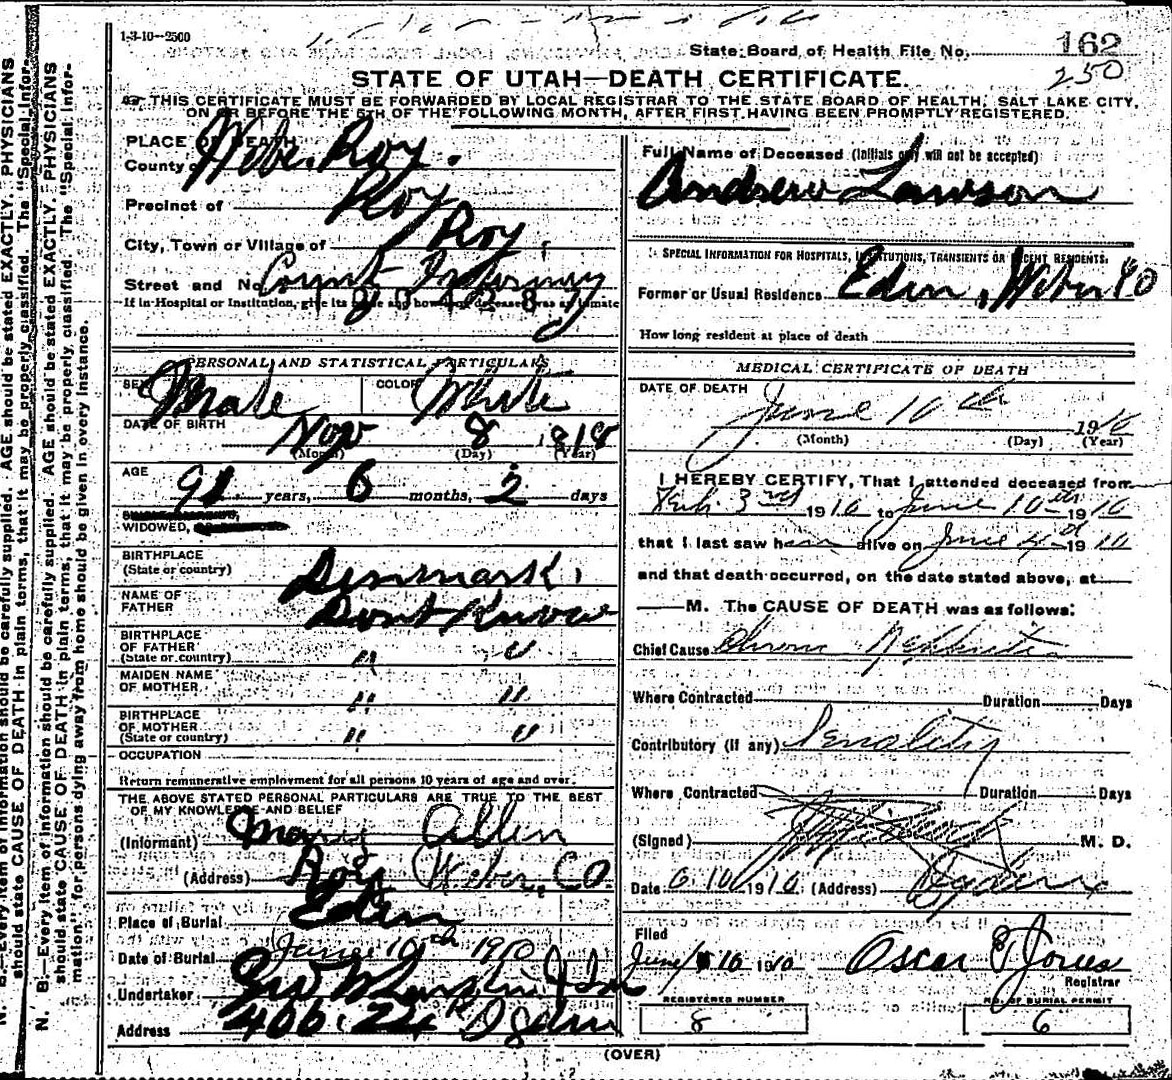 1-3-10--2500
State Board of Health File No. 162
250
STATE OF UTAH—DEATH CERTIFICATE.
THIS CERTIFICATE MUST BE FORWARDED BY LOCAL REGISTRAR TO THE STATE BOARD OF HEALTH, SALT LAKE CITY,
ON OR BEFORE THE 5TH OF THE FOLLOWING MONTH, AFTER FIRST HAVING BEEN PROMPTLY REGISTERED.
PLACE OF DEATH
County of Weber Roy.
Precinct of Roy
City, Town or Village of Roy
Street and No. County Infirmary
If in Hospital or Institution, give its name and how long deceased was an inmate
PERSONAL AND STATISTICAL PARTICULARS
SEX Male COLOR White
DATE OF BIRTH Nov 8 1818
(Month) (Day) (Year)
AGE 91 years, 6 months, 2 days
WIDOWED,
BIRTHPLACE
(State or country) Denmark.
NAME OF
FATHER Dont Know
BIRTHPLACE
OF FATHER
(State or country) " "
MAIDEN NAME
OF MOTHER " "
BIRTHPLACE
OF MOTHER
(State or country) " "
OCCUPATION
Return remunerative employment for all persons 10 years of age and over.
THE ABOVE STATED PERSONAL PARTICULARS ARE TRUE TO THE BEST
OF MY KNOWLEDGE AND BELIEF
(Informant) Mary Allen
(Address) Roy Weber, Co.
Place of Burial Eden
Date of Burial June 10th 1910
Undertaker Geo W
Address 406. 24 Ogden
Full Name of Deceased (Initials only will not be accepted)
Andrew Lawson
SPECIAL INFORMATION FOR HOSPITALS, INSTITUTIONS, TRANSIENTS OR RECENT RESIDENTS.
Former or Usual Residence Eden, Weber Co
How long resident at place of death
MEDICAL CERTIFICATE OF DEATH
DATE OF DEATH
June 10th 1910
(Month) (Day) (Year)
I HEREBY CERTIFY, That I attended deceased from
Feb. 3rd 1910 to June 10th 1910
that I last saw him alive on June 4th 1910
and that death occurred, on the date stated above, at
M. The CAUSE OF DEATH was as follows:
Chief Cause Chronic Nephritis
Where Contracted Duration Days
Contributory (if any) Senility
Where Contracted Duration Days
(Signed) M. D.
Date 6.10 1910 (Address) Ogden
Filed
June 10 1910 Oscar E Jones
Registrar
REGISTERED NUMBER
8
NO. OF BURIAL PERMIT
6
(OVER)
N. B.—Every item of information should be carefully supplied. AGE should be stated EXACTLY. PHYSICIANS
should state CAUSE OF DEATH in plain terms, that it may be properly classified. The "Special Infor-
mation" for persons dying away from home should be given in every instance.